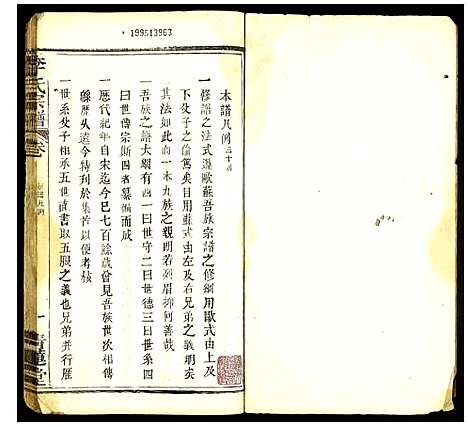 199513963
本譜凡例三十則
一修譜之法式遵歐蘇吾族宗譜之修綱用歐式由上及
下父子之倫篤矣目用蘇式由左及右兄弟之義明矣
其法如此而一本九族之親明若列眉抑何善哉
一吾族之譜大綱有四一曰世守二曰世德三曰世系四
曰世傳宗斯四者纂備而成
一歷代紀年自宋迄今已七百餘歲曾見吾族世次相傳
縣歷久遠今特列於集首以便考核
一世系父子相承五世讀書取五服之義也兄弟並行雁
李氏宗譜
卷
凡例
一
青蓮堂